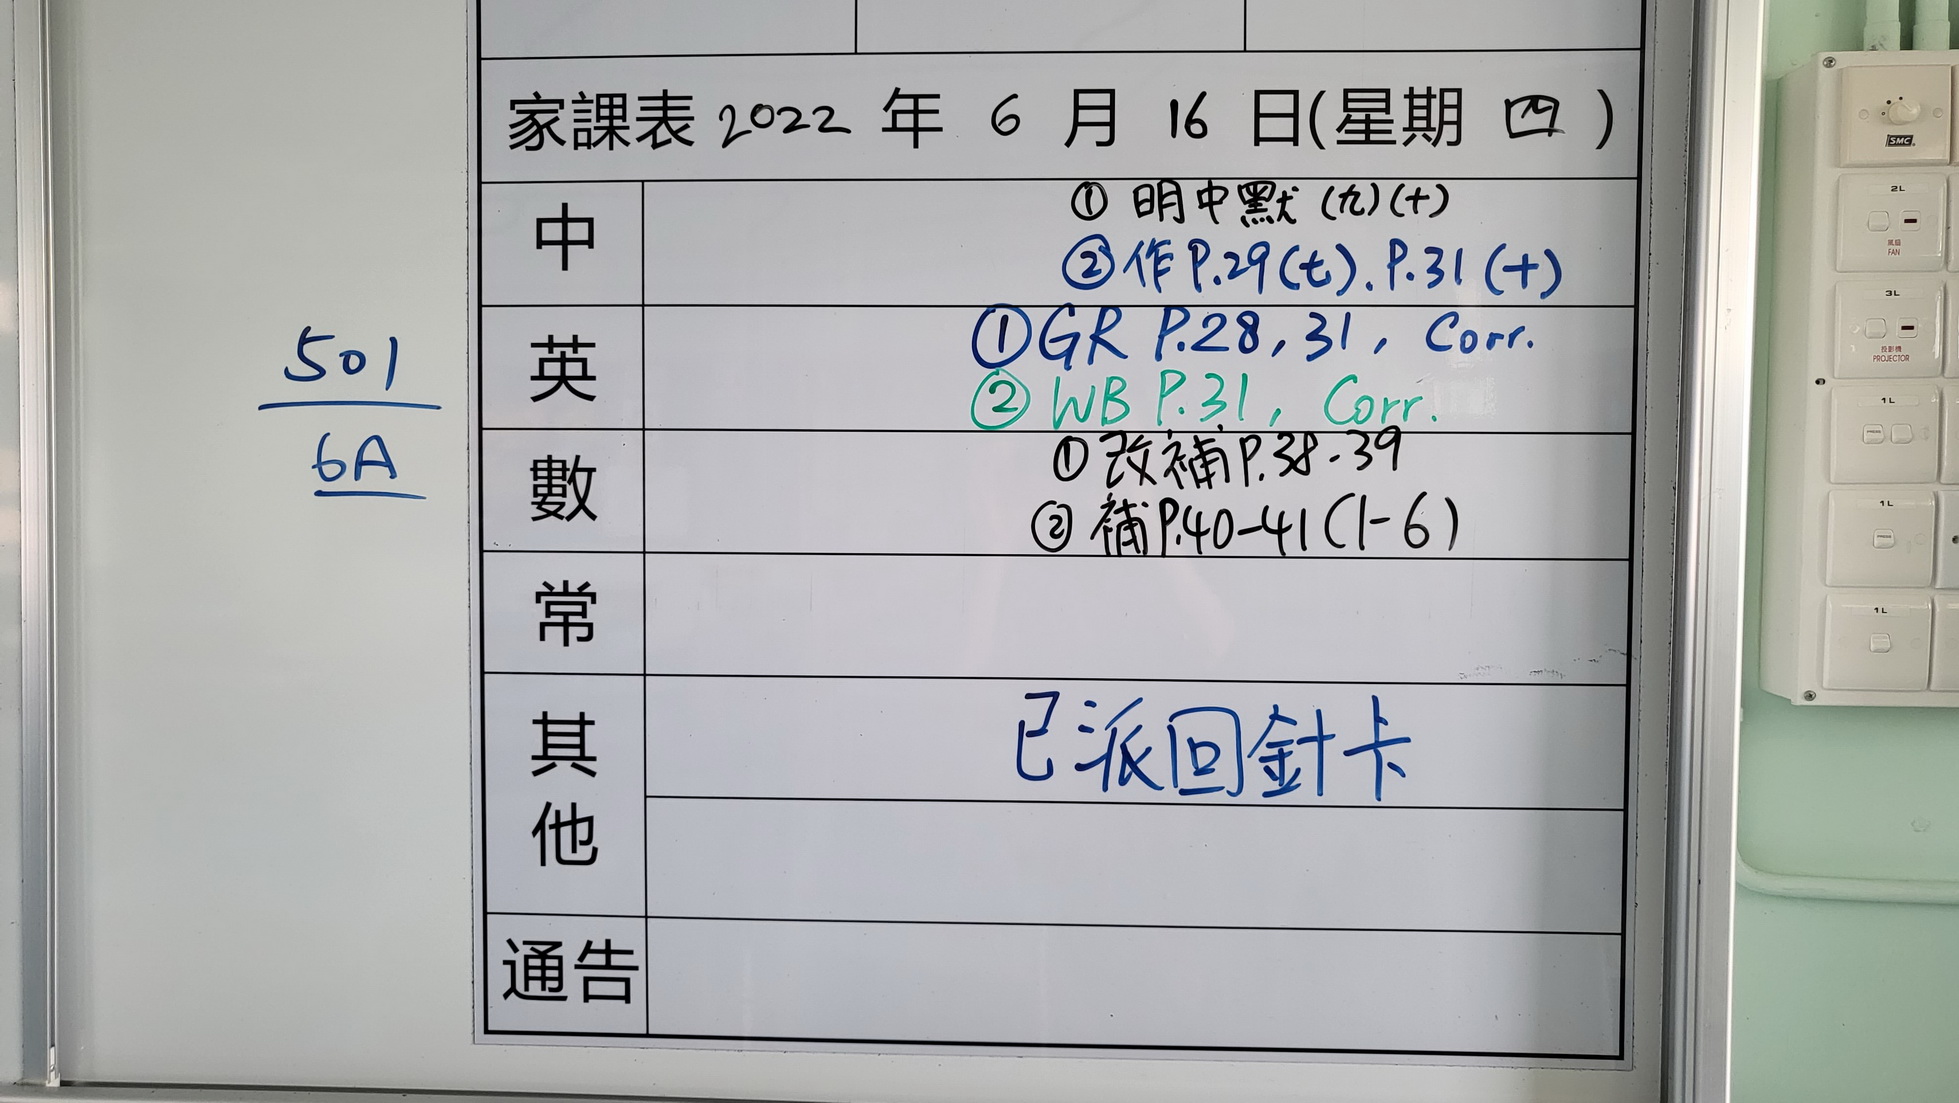 家課表 2022 年 6 月 16 日(星期 四 )
中
① 明中默 (九)(十)
② 作 P.29(七). P.31(十)
英
① GR P.28, 31, Corr.
② WB P.31, Corr.
數
① 改補 P.38-39
② 補 P.40-41(1-6)
常
其他
已派回針卡
通告
501
6A
SMC
2L
風扇
FAN
3L
投影機
PROJECTOR
1L
1L
1L